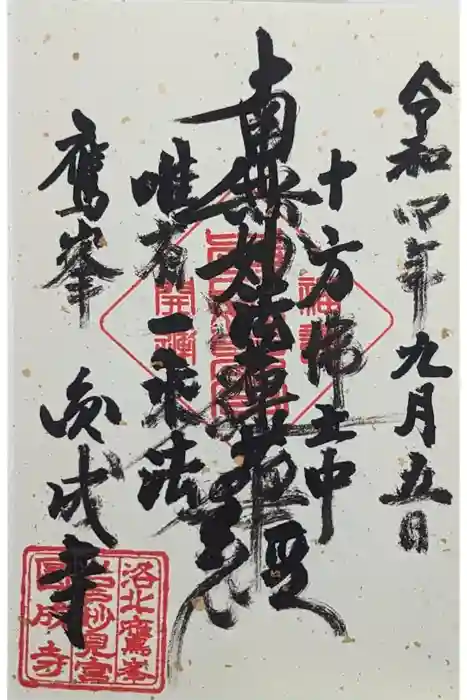 令和四年九月五日
十方佛土中
南無妙法蓮華経
唯有一乗法
鷹峯
圓成寺
洛北鷹峯
妙見宮
圓成寺